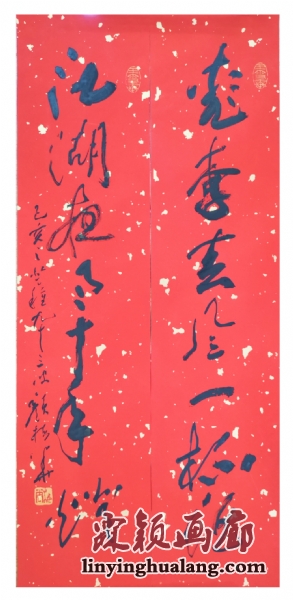 桃李春风一杯酒
江湖夜雨十年灯
己亥
霖颖画廊
linyinghualang.com